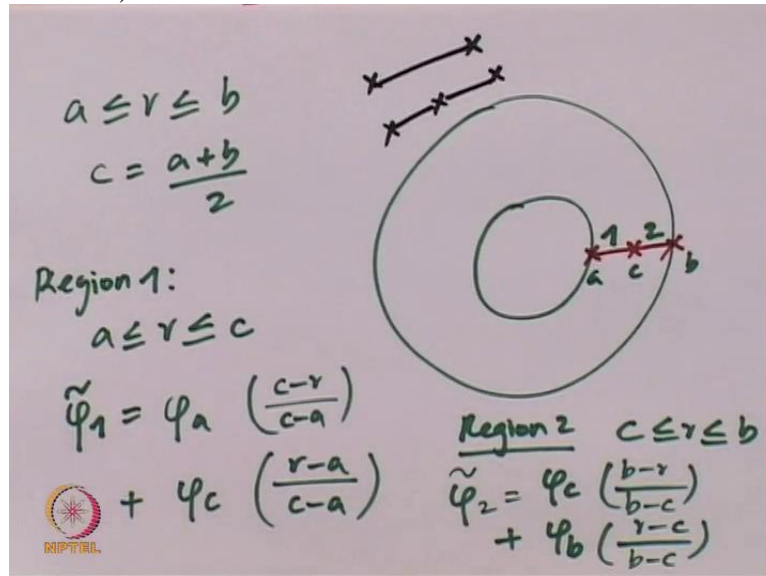 a ≤ r ≤ b
c = (a+b)/2
1 2
a c b
Region 1:
a ≤ r ≤ c
φ̃₁ = φₐ ((c-r)/(c-a))
+ φ_c ((r-a)/(c-a))
Region 2 c ≤ r ≤ b
φ̃₂ = φ_c ((b-r)/(b-c))
+ φ_b ((r-c)/(b-c))
NPTEL